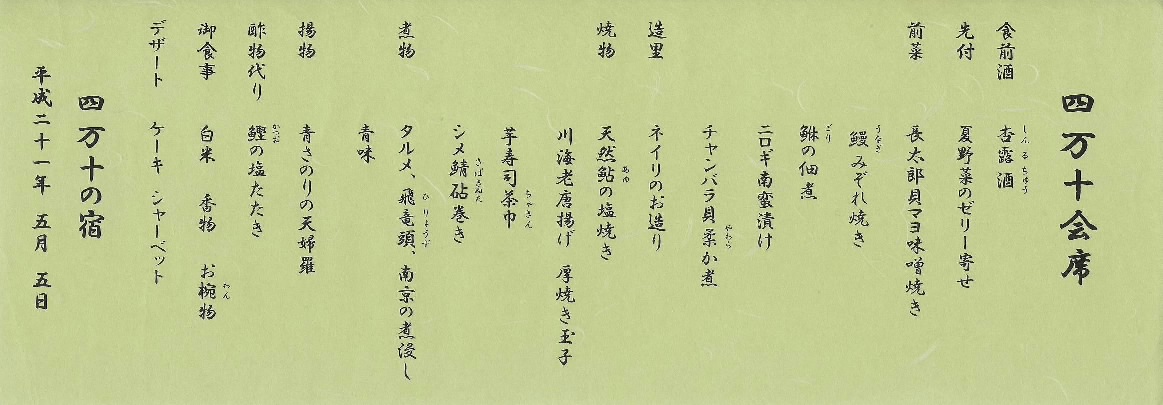 四万十会席
食前酒 杏露酒
しんるちゅう
先付 夏野菜のゼリー寄せ
前菜 長太郎貝マヨ味噌焼き
鰻みぞれ焼き
うなぎ
鮴の佃煮
ごり
ニロギ南蛮漬け
チャンバラ貝柔か煮
やわら
造里 ネイリのお造り
焼物 天然鮎の塩焼き
あゆ
川海老唐揚げ 厚焼き玉子
芋寿司茶巾
ちゃきん
シメ鯖砧巻き
さばきぬた
煮物 タルメ、飛竜頭、南京の煮浸し
ひりょうず
青味
揚物 青さのりの天婦羅
酢物代り 鰹の塩たたき
かつお
御食事 白米 香物 お椀物
わん
デザート ケーキ シャーベット
四万十の宿
平成二十一年 五月 五日